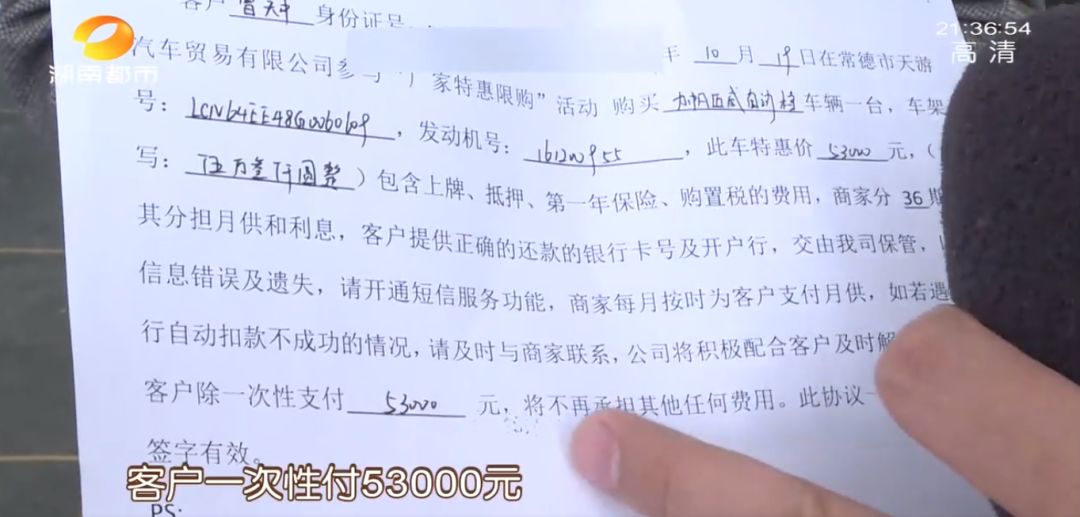 客户 曾天中 身份证号
21:36:54
高清
湖南都市
年 10 月 19 日在常德市天游
汽车贸易有限公司参与“厂家特惠限购”活动 购买 自动挡 车辆一台，车架
号：LCN64EE48G0060609，发动机号：161200955，此车特惠价 53000 元，（
写：伍万叁仟圆整）包含上牌、抵押、第一年保险、购置税的费用，商家分 36 期
其分担月供和利息，客户提供正确的还款的银行卡号及开户行，交由我司保管，
信息错误及遗失，请开通短信服务功能，商家每月按时为客户支付月供，如若遇
行自动扣款不成功的情况，请及时与商家联系，公司将积极配合客户及时解
客户除一次性支付 53000 元，将不再承担其他任何费用。此协议一
签字有效。
客户一次性付53000元
PS: